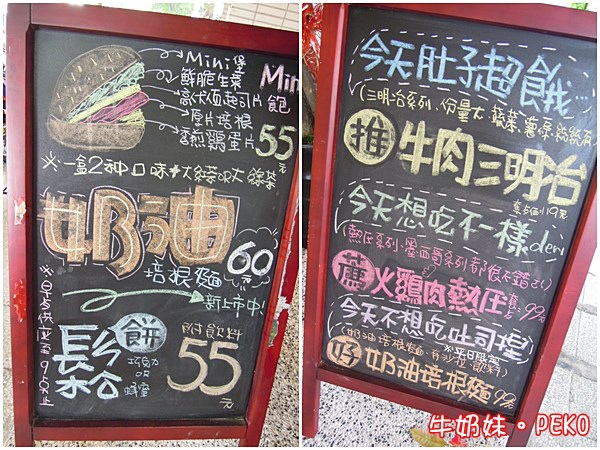 Mini堡
鮮脆生菜
高鈣起司片
厚片培根
香煎蛋片
Mini
飽
55
元
※一盒2种口味+
奶油
60
元
培根麵
新上市中!
※早點供應至9點止
鬆餅
巧克力
OR
蜂蜜
附飲料
55
元
今天肚子超餓…
(三明治系列,份量大,蔬菜,薯條
推 牛肉三明治
119元
今天想吃不一樣den
(熱压系列、墨西哥系列都很不錯!)
薦 火鷄肉熱压 99元
今天不想吃吐司捏
※平日限定
(奶油培根麵,有沙拉,飲料)
好 奶油培根麵 99元
牛奶妹·PEKO